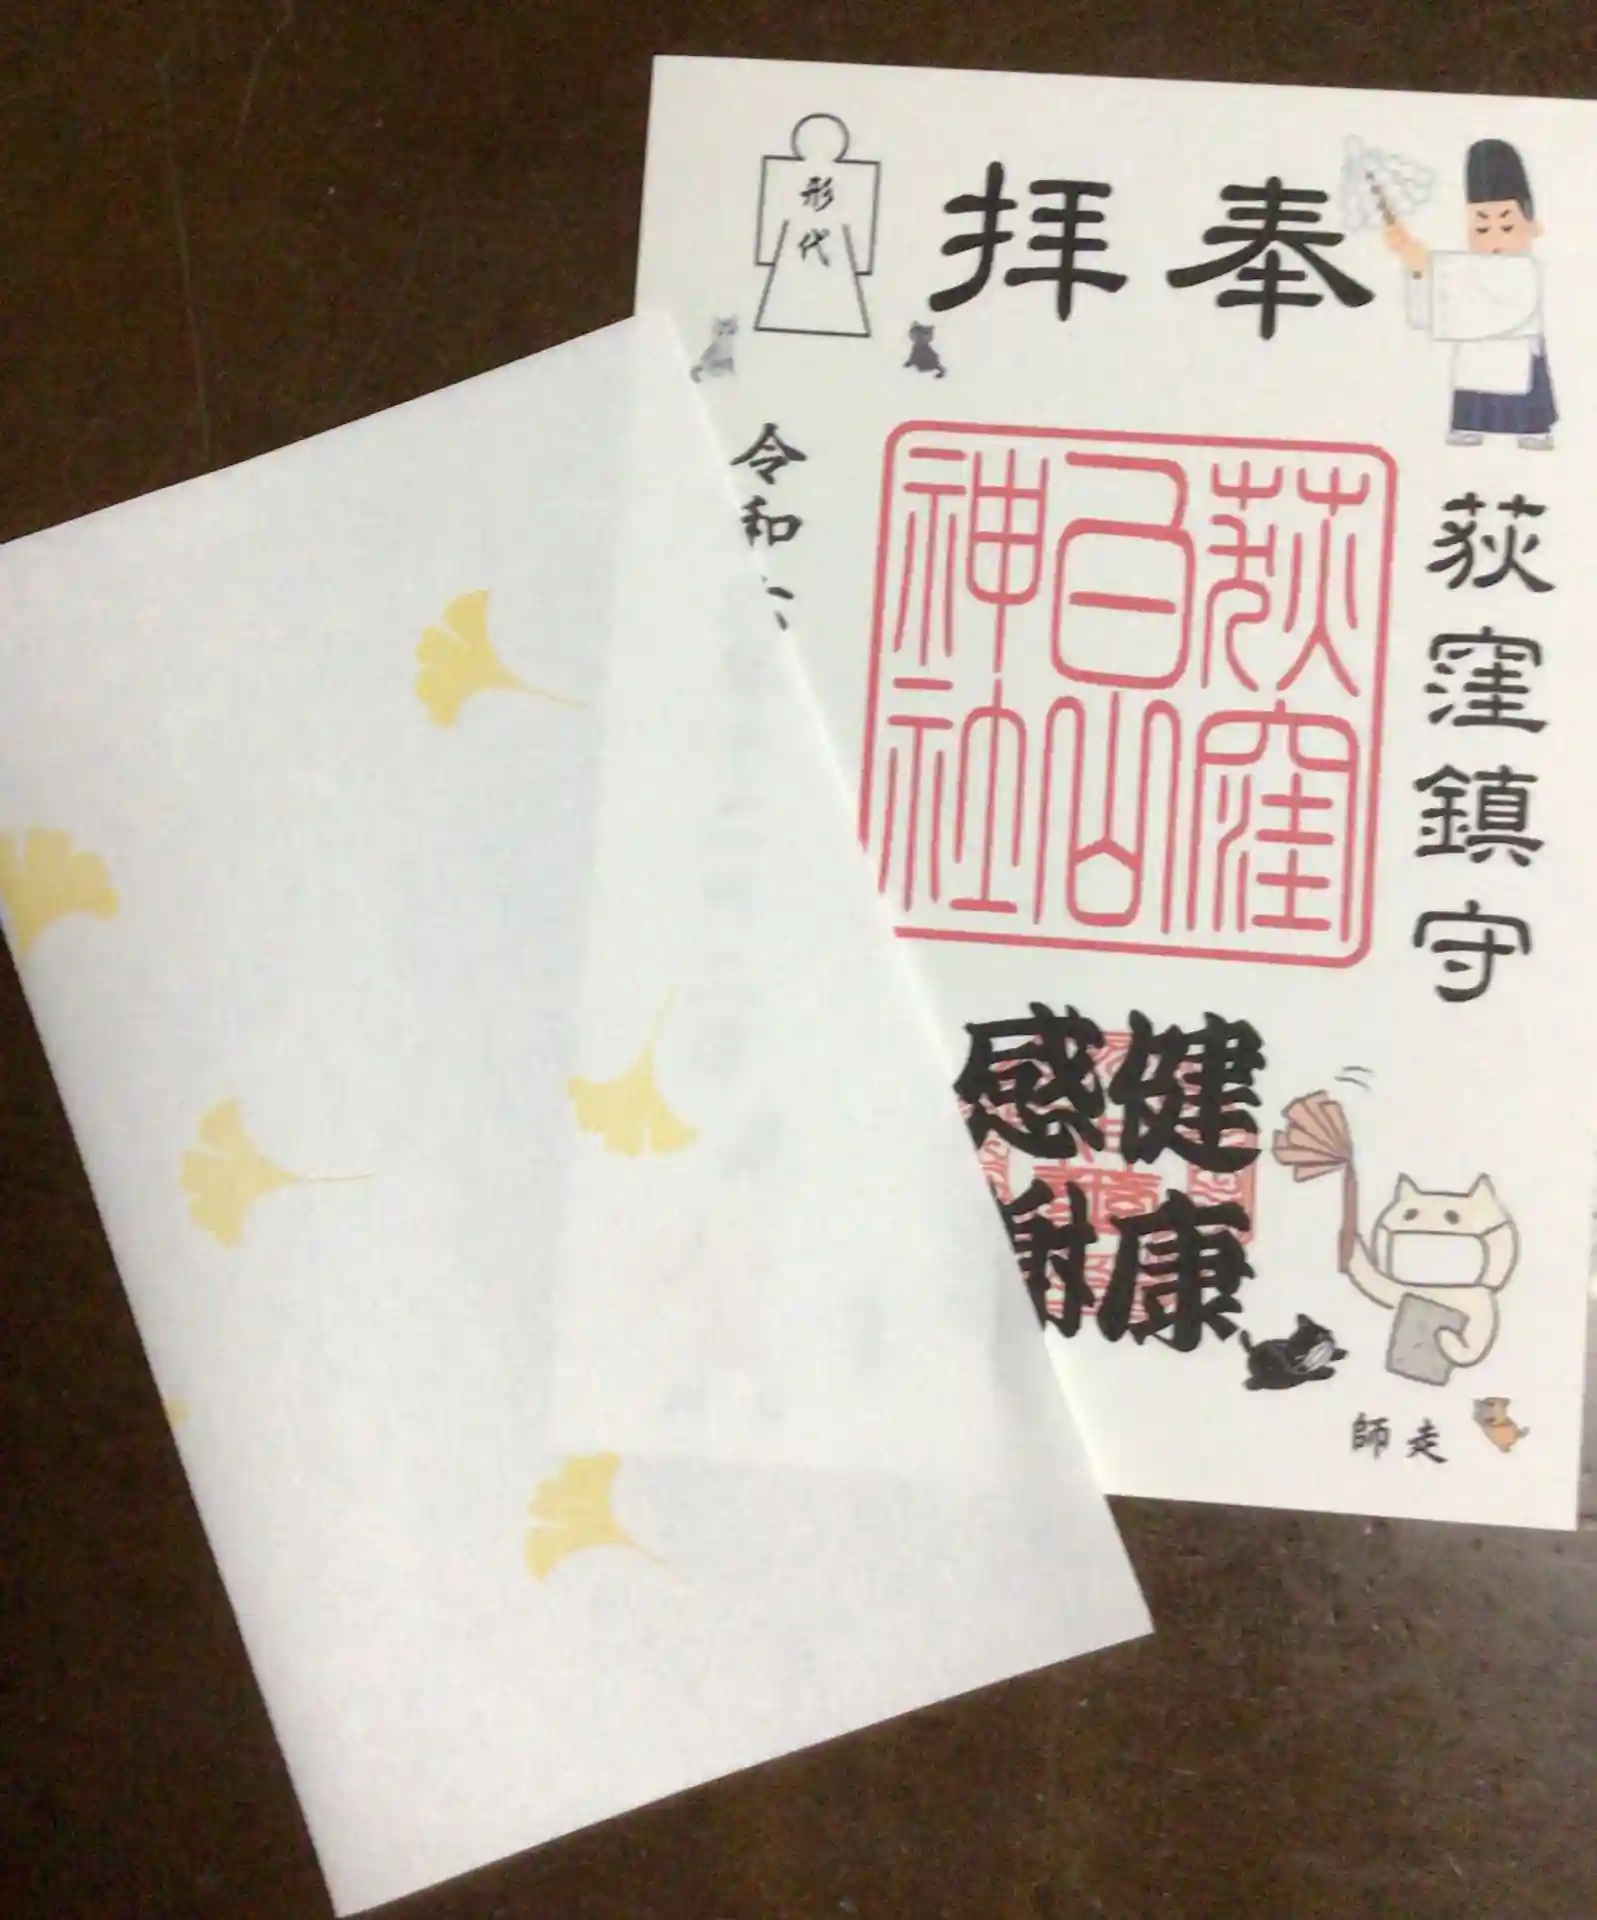 奉拝
形代
荻窪鎮守
荻窪
白山
神社
令和六
健康
感謝
師走